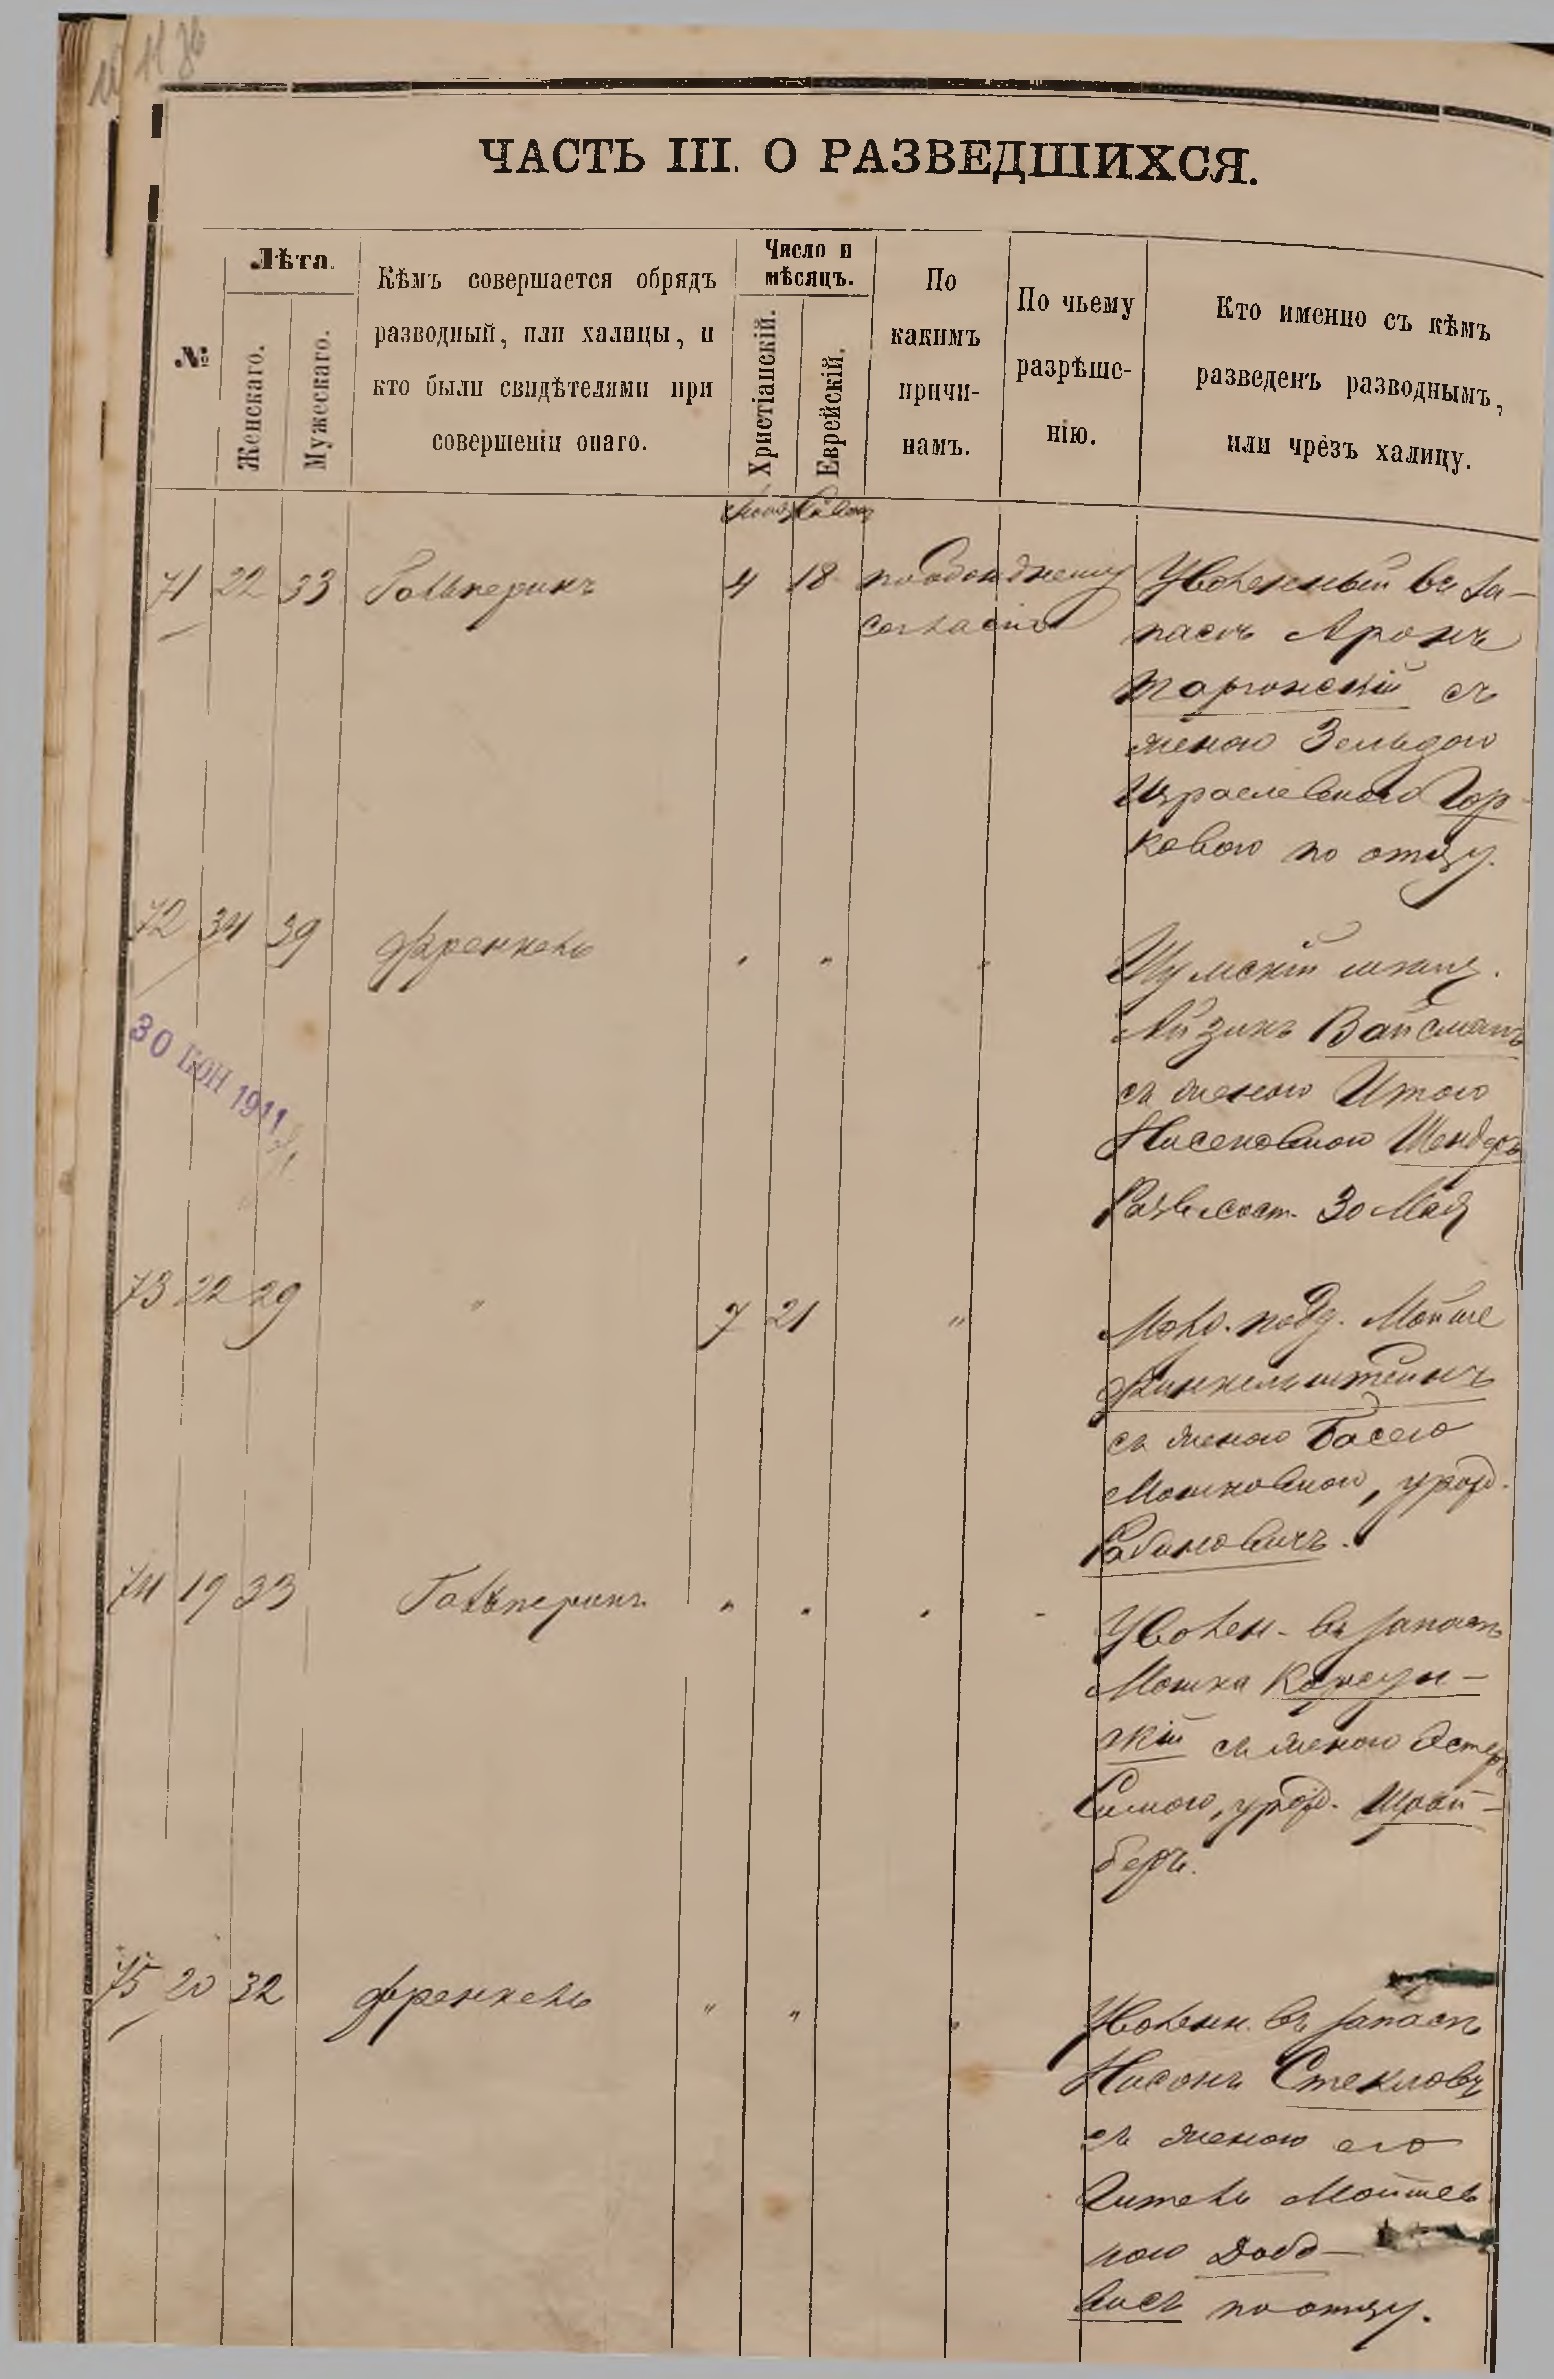 ЧАСТЬ III. О РАЗВЕДШИХСЯ.
№
Лѣта.
Женскаго.
Мужескаго.
Кѣмъ совершается обрядъ
разводный, или халицы, и
кто были свидѣтелями при
совершеніи онаго.
Число и
мѣсяцъ.
Христіанскій.
Еврейскій.
По
какимъ
причи-
намъ.
По чьему
разрѣше-
нію.
Кто именно съ кѣмъ
разведенъ разводнымъ,
или чрезъ халицу.
71 22 33 Гальперинъ 4 18 по обоюдному
согласію
Уволенный въ за-
пасъ Аронъ
Таргонскій съ
женою Зельдою
Израелевною Гор-
ковою по отцу.
72 34 39 Френкель " " "
Шумскій мѣщ.
Айзикъ Вайсманъ
съ женою Итою
Нисеновною Шендеръ
Разв. сост. 30 Мая
30 ІЮН 1911
73 22 29 " 7 21 "
Мойше
Финкельштейнъ
съ женою Басею
Мошковною, урожд.
Рабиновичъ.
74 19 33 Гальперинъ " " " "
Уволен. въ запасъ
Мошка Корсун-
скій съ женою Эстеръ
Симою, урожд. Шрай-
беръ.
75 20 32 Френкель " " "
Уволен. въ запасъ
Нисонъ Стекловъ
съ женою его
Гителъ Мойшев
ною Дово-
висъ по отцу.